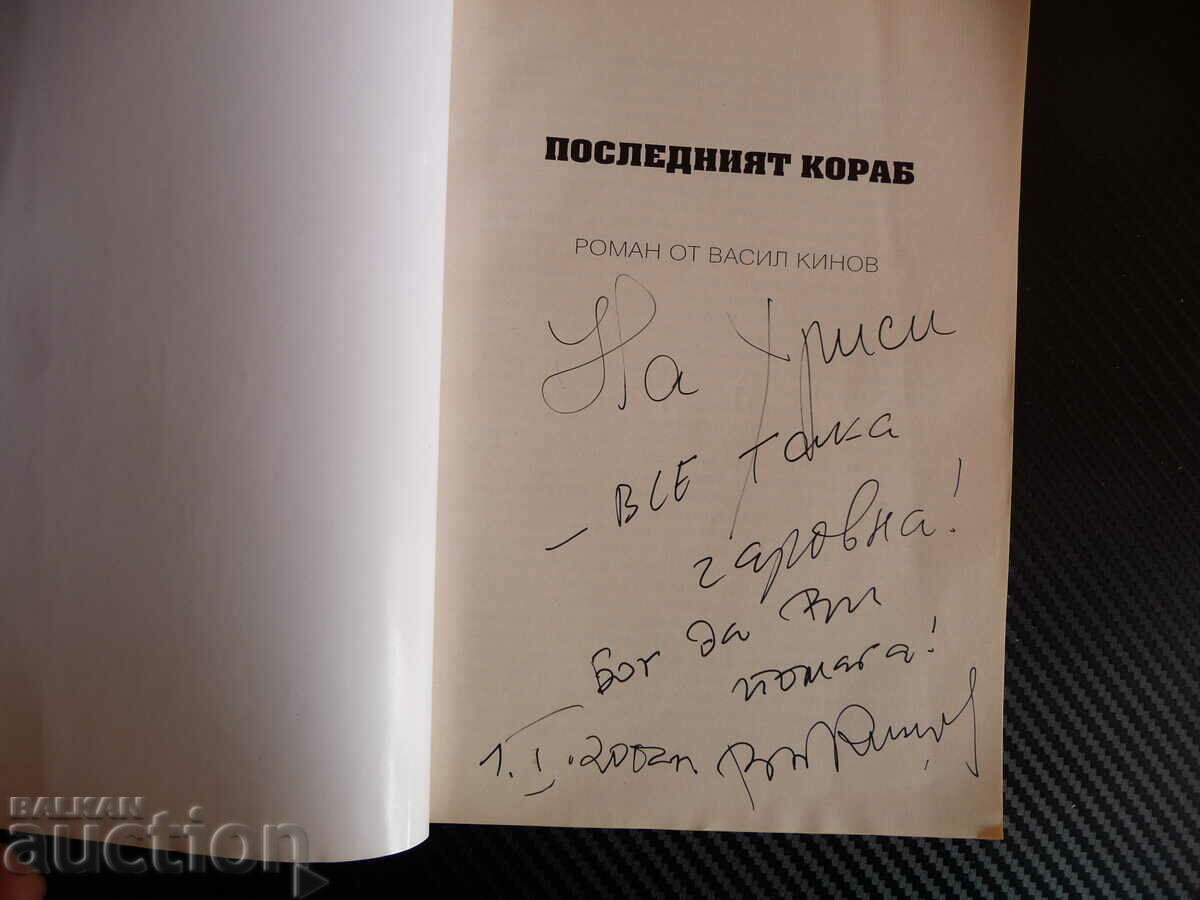 ПОСЛЕДНИЯТ КОРАБ
РОМАН ОТ ВАСИЛ КИНОВ
На Хриси
– ВСЕ така
чаровна!
Бог да Ви
помага!
1.I.2002г.
BALKAN
auction